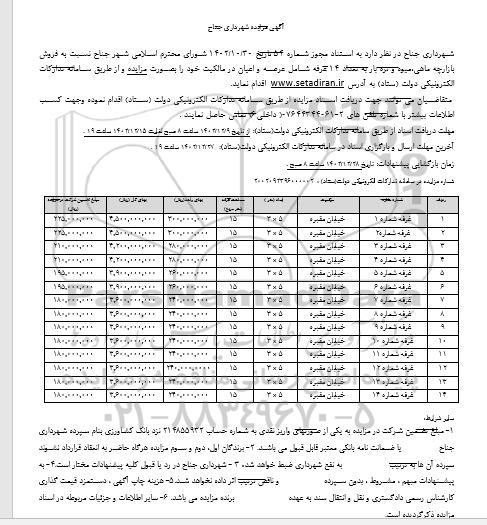 آگهی مزایده شهرداری جناح
شهرداری جناح در نظر دارد به استناد مجوز شماره ۵۴ تاریخ ۱۴۰۲/۱۰/۳۰ شورای محترم اسلامی شهر جناح نسبت به فروش
بازارچه ماهی،میوه و تره بار به تعداد ۱۴ غرفه شامل عرصه و اعیان در مالکیت خود را بصورت مزایده و از طریق سامانه تدارکات
الکترونیکی دولت (ستاد) به آدرس www.setadiran.ir اقدام نماید.
متقاضیان می توانند جهت دریافت اسناد مزایده از طریق سامانه تدارکات الکترونیکی دولت (ستاد) اقدام نموده وجهت کسب
اطلاعات بیشتر با شماره تلفن های ۲-۰۷۶۴۴۳۴۴۰۶۱( داخلی ۳) تماس حاصل نمایند .
مهلت دریافت اسناد از طریق سامانه تدارکات الکترونیکی دولت(ستاد): از تاریخ ۱۴۰۲/۱۲/۹ ساعت ۸ صبح لغایت ۱۴۰۲/۱۲/۱۵ ساعت ۱۹ .
آخرین مهلت ارسال و بارگزاری اسناد در سامانه تدارکات الکترونیکی دولت(ستاد): ۱۴۰۲/۱۲/۲۷ ساعت ۱۹ .
زمان بازگشایی پیشنهادات: تاریخ ۱۴۰۲/۱۲/۲۸ ساعت ۸ صبح .
شماره مزایده در سامانه تدارکات الکترونیکی دولت(ستاد)
ردیف شماره غرفه موقعیت ابعاد (متر) مساحت غرفه (متر مربع) بهای پایه(ریال) بهای کل (ریال) مبلغ تضمین شرکت در مزایده (ریال)
۱ غرفه شماره ۱ خیابان مقبره ۵ × ۳ ۱۵ ۳۰۰,۰۰۰,۰۰۰ ۴,۵۰۰,۰۰۰,۰۰۰ ۲۲۵,۰۰۰,۰۰۰
۲ غرفه شماره۲ خیابان مقبره ۵ × ۳ ۱۵ ۳۰۰,۰۰۰,۰۰۰ ۴,۵۰۰,۰۰۰,۰۰۰ ۲۲۵,۰۰۰,۰۰۰
۳ غرفه شماره ۳ خیابان مقبره ۵ × ۳ ۱۵ ۲۸۰,۰۰۰,۰۰۰ ۴,۲۰۰,۰۰۰,۰۰۰ ۲۱۰,۰۰۰,۰۰۰
۴ غرفه شماره ۴ خیابان مقبره ۵ × ۳ ۱۵ ۲۸۰,۰۰۰,۰۰۰ ۴,۲۰۰,۰۰۰,۰۰۰ ۲۱۰,۰۰۰,۰۰۰
۵ غرفه شماره ۵ خیابان مقبره ۵ × ۳ ۱۵ ۲۶۰,۰۰۰,۰۰۰ ۳,۹۰۰,۰۰۰,۰۰۰ ۱۹۵,۰۰۰,۰۰۰
۶ غرفه شماره ۶ خیابان مقبره ۵ × ۳ ۱۵ ۲۶۰,۰۰۰,۰۰۰ ۳,۹۰۰,۰۰۰,۰۰۰ ۱۹۵,۰۰۰,۰۰۰
۷ غرفه شماره ۷ خیابان مقبره ۵ × ۳ ۱۵ ۲۴۰,۰۰۰,۰۰۰ ۳,۶۰۰,۰۰۰,۰۰۰ ۱۸۰,۰۰۰,۰۰۰
۸ غرفه شماره ۸ خیابان مقبره ۵ × ۳ ۱۵ ۲۴۰,۰۰۰,۰۰۰ ۳,۶۰۰,۰۰۰,۰۰۰ ۱۸۰,۰۰۰,۰۰۰
۹ غرفه شماره ۹ خیابان مقبره ۵ × ۳ ۱۵ ۲۴۰,۰۰۰,۰۰۰ ۳,۶۰۰,۰۰۰,۰۰۰ ۱۸۰,۰۰۰,۰۰۰
۱۰ غرفه شماره ۱۰ خیابان مقبره ۵ × ۳ ۱۵ ۲۴۰,۰۰۰,۰۰۰ ۳,۶۰۰,۰۰۰,۰۰۰ ۱۸۰,۰۰۰,۰۰۰
۱۱ غرفه شماره ۱۱ خیابان مقبره ۵ × ۳ ۱۵ ۲۴۰,۰۰۰,۰۰۰ ۳,۶۰۰,۰۰۰,۰۰۰ ۱۸۰,۰۰۰,۰۰۰
۱۲ غرفه شماره ۱۲ خیابان مقبره ۵ × ۳ ۱۵ ۲۴۰,۰۰۰,۰۰۰ ۳,۶۰۰,۰۰۰,۰۰۰ ۱۸۰,۰۰۰,۰۰۰
۱۳ غرفه شماره ۱۳ خیابان مقبره ۵ × ۳ ۱۵ ۲۴۰,۰۰۰,۰۰۰ ۳,۶۰۰,۰۰۰,۰۰۰ ۱۸۰,۰۰۰,۰۰۰
۱۴ غرفه شماره ۱۴ خیابان مقبره ۵ × ۳ ۱۵ ۲۴۰,۰۰۰,۰۰۰ ۳,۶۰۰,۰۰۰,۰۰۰ ۱۸۰,۰۰۰,۰۰۰
۰۲۱-۸۸۳۴۹۶۷۰-۵
سایر شرایط:
۱- مبلغ تضمین شرکت در مزایده به یکی از صورتهای واریز نقدی به شماره حساب ۲۱۴۸۵۵۹۳۲ نزد بانک کشاورزی بنام سپرده شهرداری
جناح یا ضمانت نامه بانکی معتبر قابل قبول می باشد. ۲- برندگان اول، دوم و سوم مزایده هرگاه حاضر به انعقاد قرارداد نشوند
سپرده آن ها به ترتیب به نفع شهرداری ضبط خواهد شد، ۳ - شهرداری جناح در رد یا قبول کلیه پیشنهادات مختار است.۴- به
پیشنهادات مبهم ، مشروط ، بدون سپرده و ناقص ترتیب اثر داده نخواهد شد.۵- هزینه چاپ آگهی ، دستمزد قیمت گذاری
کارشناس رسمی دادگستری و نقل و انتقال سند به عهده برنده مزایده می باشد. ۶- سایر اطلاعات و جزئیات مربوطه در اسناد
مزایده ذکرگردیده است.